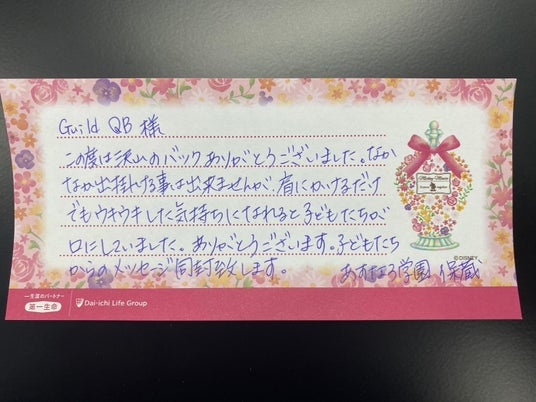 Guild QB 様
この度は沢山のバックありがとうございました。なか
なか出掛ける事は出来ませんが、肩にかけるだけ
でもウキウキした気持ちになれると子どもたちが
口にしていました。ありがとうございます。子どもたち
からのメッセージ同封致します。
あすなろ学園
©DISNEY
一生涯のパートナー
第一生命 Dai-ichi Life Group